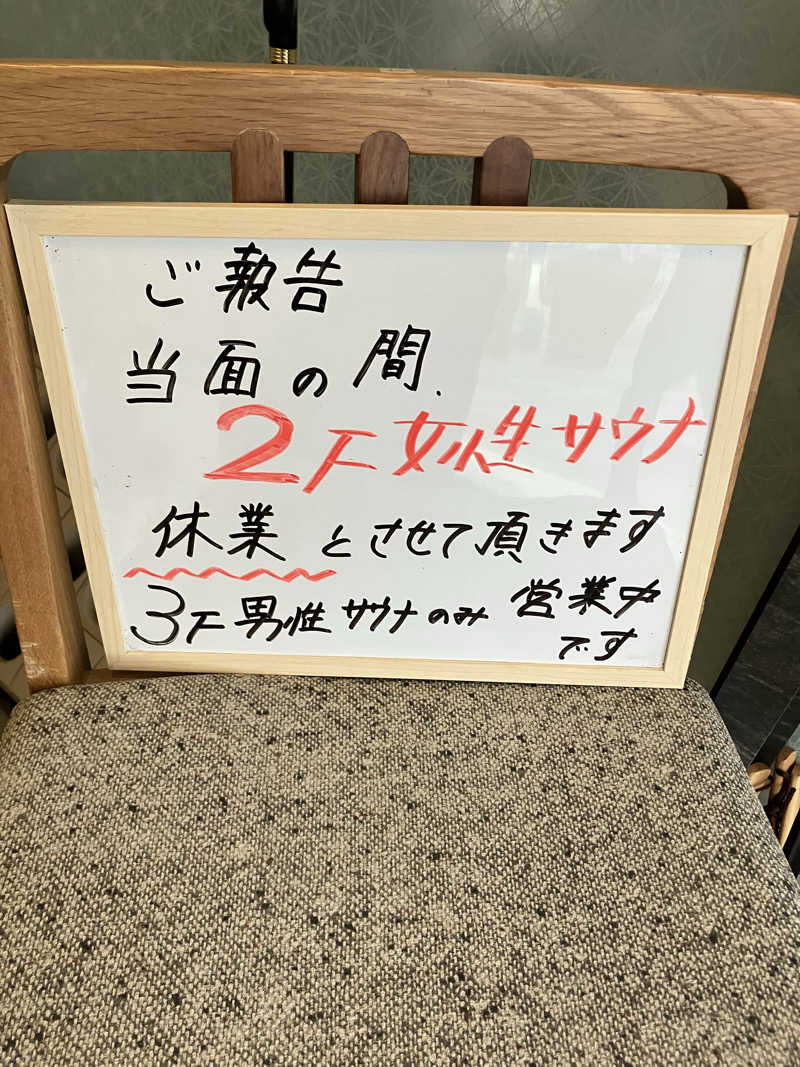 ご報告
当面の間、
2F女性サウナ
休業とさせて頂きます
3F男性サウナのみ営業中
です